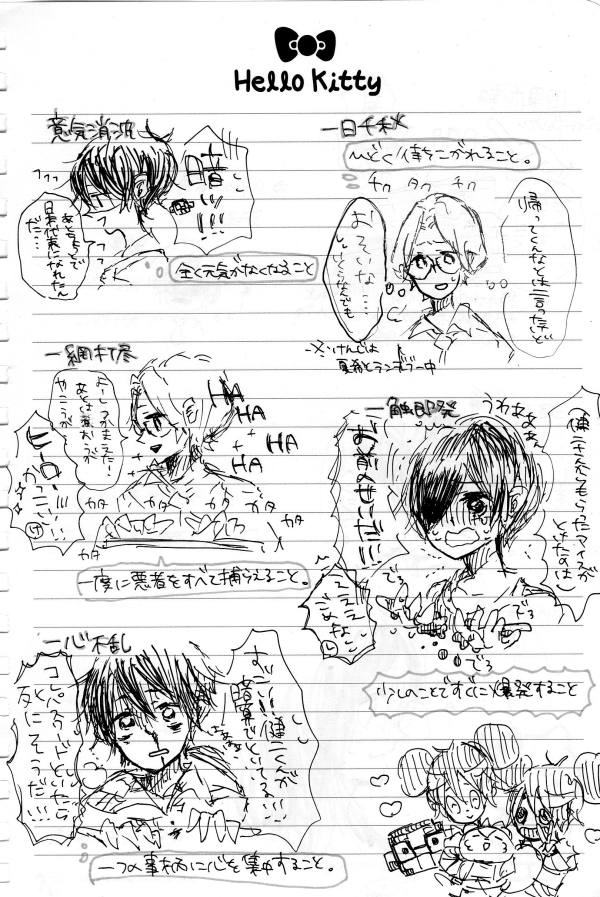 Hello Kitty
一日千秋
ひどく待ちこがれること。
チク タク チク
帰ってくんなとは言ったけど
おそいな…
しいくらなんでも
※けんじは
夏希とランデブー中
意気消沈
暗ッ!!!
あとちょっとで
日本代表になれたん
だ…
全く元気がなくなること
一網打尽
よーしつかまえた!
あとは煮るなり
やこうが
HA
HA
HA
HA
ヒーロー
かっこいー!!!
カタ カタ カタ カタ
カタ
カタ
一度に悪者をすべて捕らえること。
一触即発
うわあああぁ
(健二さんからもらったアイスが
とけたのは)
お前のせいだ!!!
えええ
ごめんなさい
でろ
でろ
でろ
少しのことですぐに爆発すること
一心不乱
すごい!!健二くんが
暗算でといてる!!!
コレパスワードといたら
死にそうだ!!!
一つの事柄に心を集中すること。